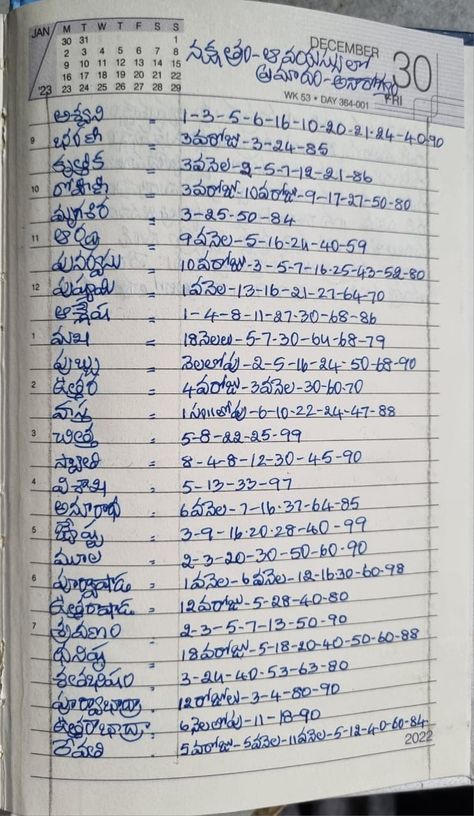 JAN M T W T F S S
30 31 1
2 3 4 5 6 7 8
9 10 11 12 13 14 15
16 17 18 19 20 21 22
'23 23 24 25 26 27 28 29
DECEMBER 30
WK 53 • DAY 364-001 FRI
నక్షత్రం - ఆ వయస్సులో
ప్రమాదం - అనారోగ్యం
అశ్వని = 1-3-5-6-16-10-20-21-24-40-90
9 భరణి = 3వరోజు-3-24-85
కృత్తిక = 3వనెల-2-5-7-12-21-86
10 రోహిణి = 3వరోజు-10వరోజు-9-17-27-50-80
మృగశిర = 3-25-50-84
11 ఆరుద్ర = 9వనెల-5-16-24-40-59
పునర్వసు = 10వరోజు-3-5-7-16-25-43-52-80
12 పుష్యమి = 1వనెల-13-16-21-27-64-70
ఆశ్లేష = 1-4-8-11-27-30-68-86
1 మఖ = 18నెలలు-5-7-30-64-68-79
పుబ్బ = నెలలోపు-2-5-16-24-50-68-90
2 ఉత్తర = 4వరోజు-3వనెల-30-60-70
హస్త = 1సం॥లోపు-6-10-22-24-47-88
3 చిత్త = 5-8-22-25-99
స్వాతి = 8-4-8-12-30-45-90
4 విశాఖ = 5-13-33-97
అనూరాధ = 6వనెల-7-16-37-64-85
5 జ్యేష్ఠ = 3-9-16-20-28-40-99
మూల = 2-3-20-30-50-60-90
6 పూర్వాషాడ = 1వనెల-6వనెల-12-16-30-60-98
ఉత్తరాషాడ = 12వరోజు-5-28-40-80
7 శ్రవణం = 2-3-5-7-13-50-90
ధనిష్ఠ = 18వరోజు-5-18-20-40-50-60-88
శతభిషం = 3-24-40-53-63-80
పూర్వాభాద్ర = 12రోజులు-3-4-80-90
ఉత్తరాభాద్ర = 6నెలలోపు-11-18-90
రేవతి = 5వరోజు-5వనెల-11వనెల-5-12-40-60-84
2022